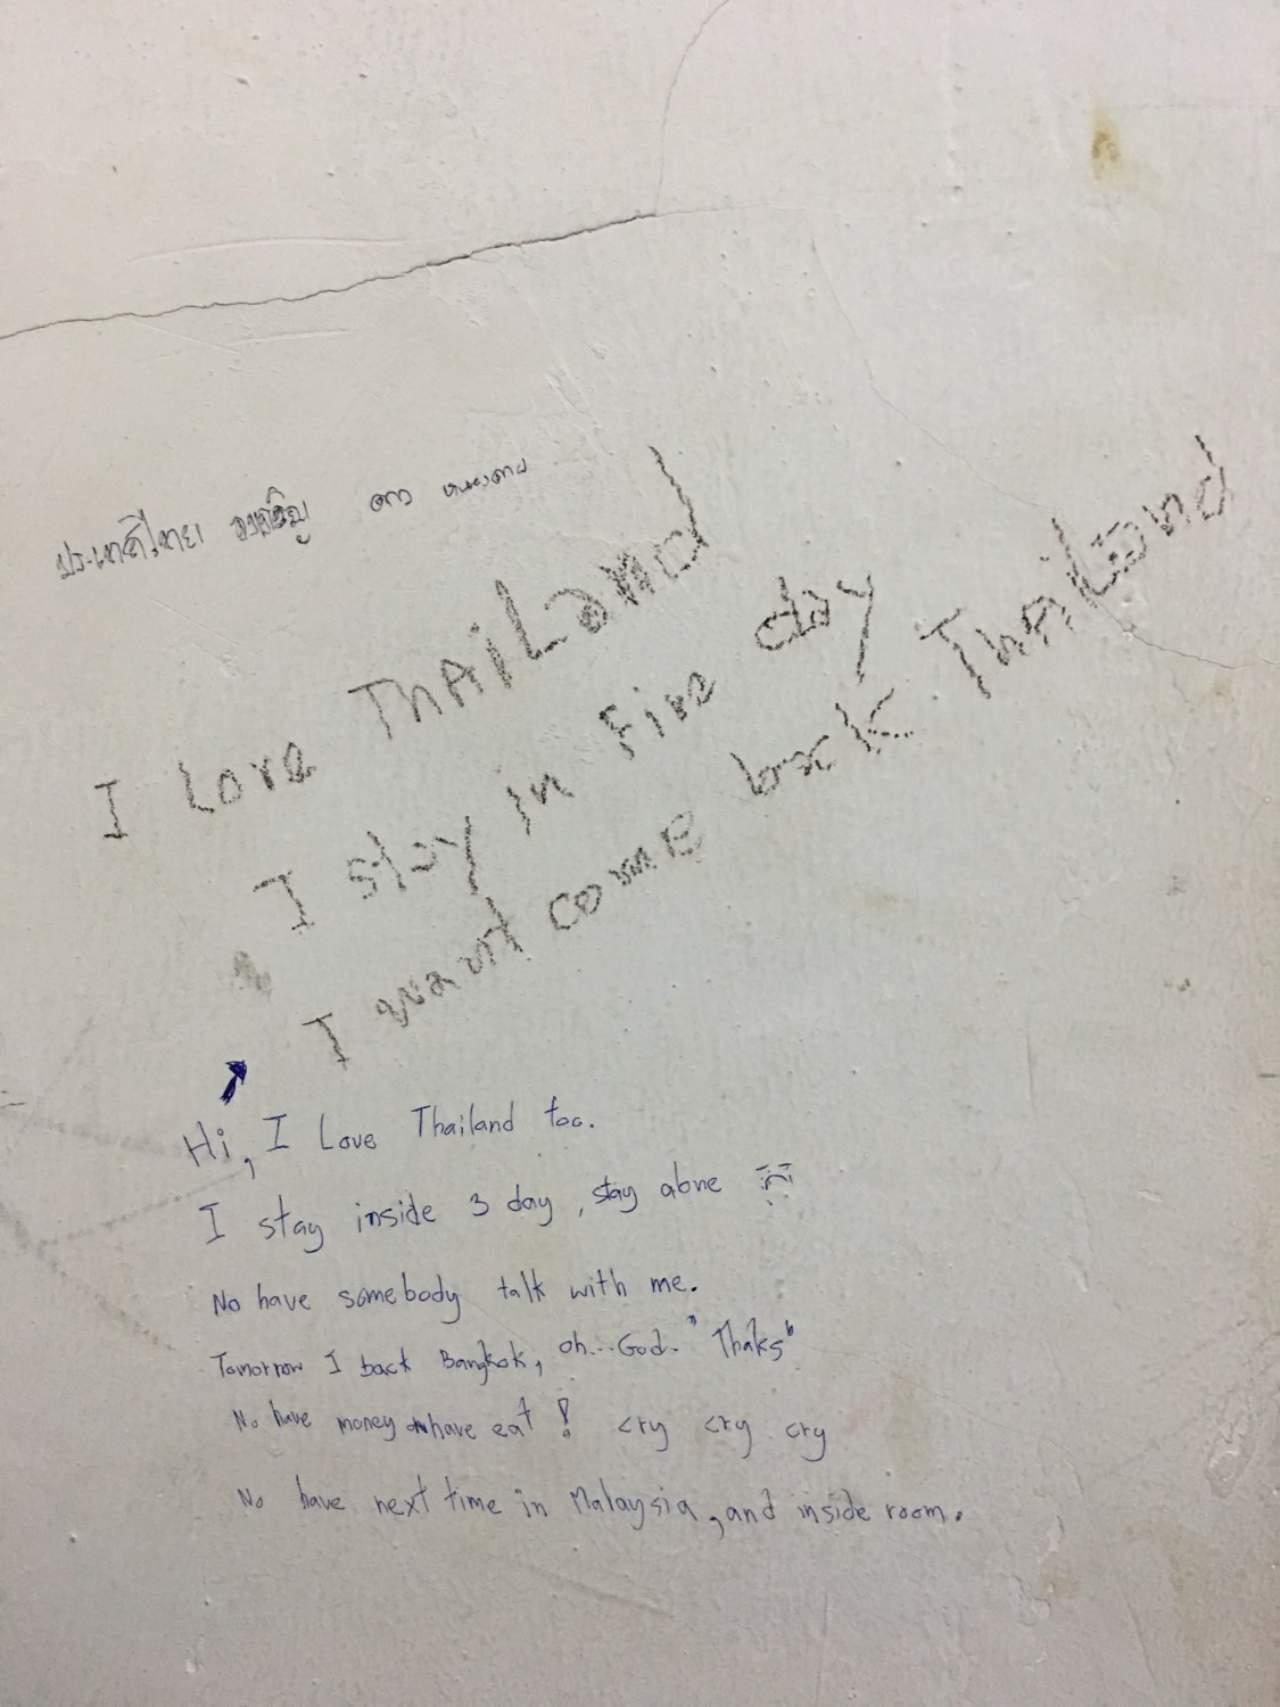 ประเทศไทย
I Love ThAiLand
I stay in Five day
I want come back Thailand
Hi, I Love Thailand too.
I stay inside 3 day, stay alone
No have somebody talk with me.
Tomorrow I back Bangkok, oh...God. "Thaks"
No have money have eat! cry cry cry
No have next time in Malaysia, and inside room.